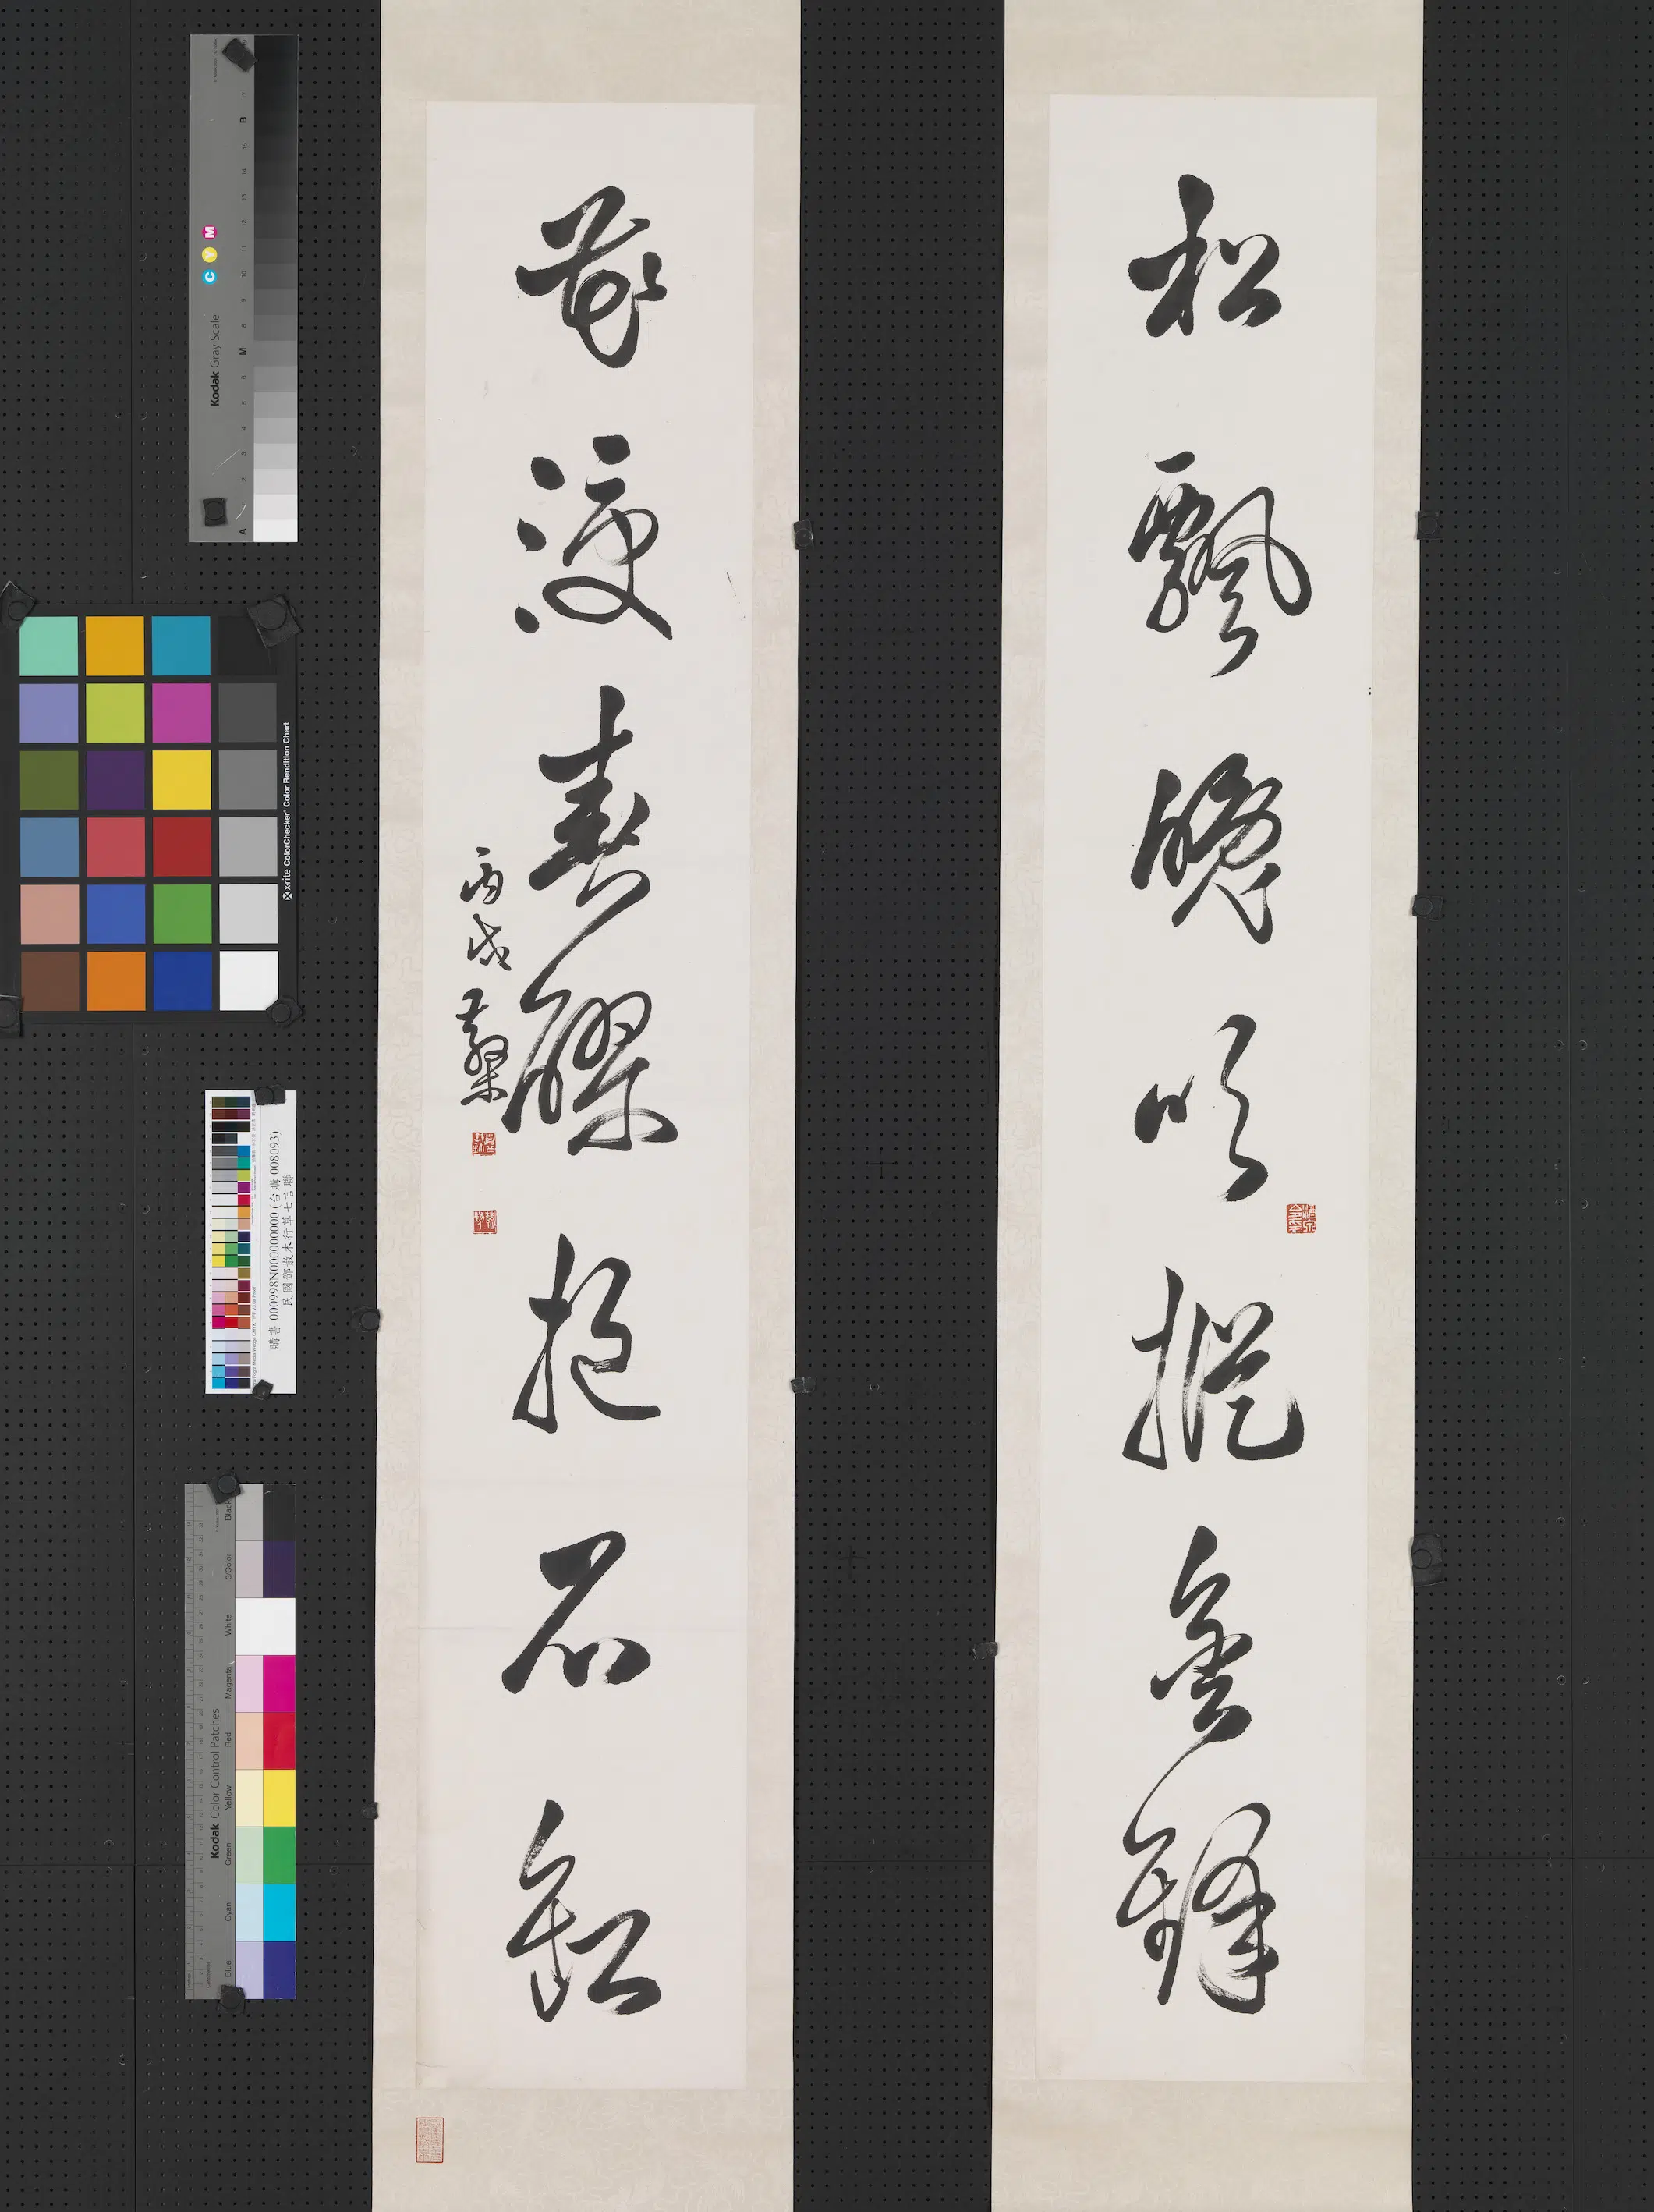 松飄晚吹摐金鐸
花浸春醪挹石缸
丙戌散木
Kodak Gray Scale
C Y M
A 1 2 3 4 5 6 M 8 9 10 11 12 13 14 15 B 17
x-rite ColorChecker Color Rendition Chart
購書 000998N000000000 (台購 008093)
民國鄧散木行草七言聯
Kodak Color Control Patches
Blue Cyan Green Yellow Red Magenta White 3/Color Black